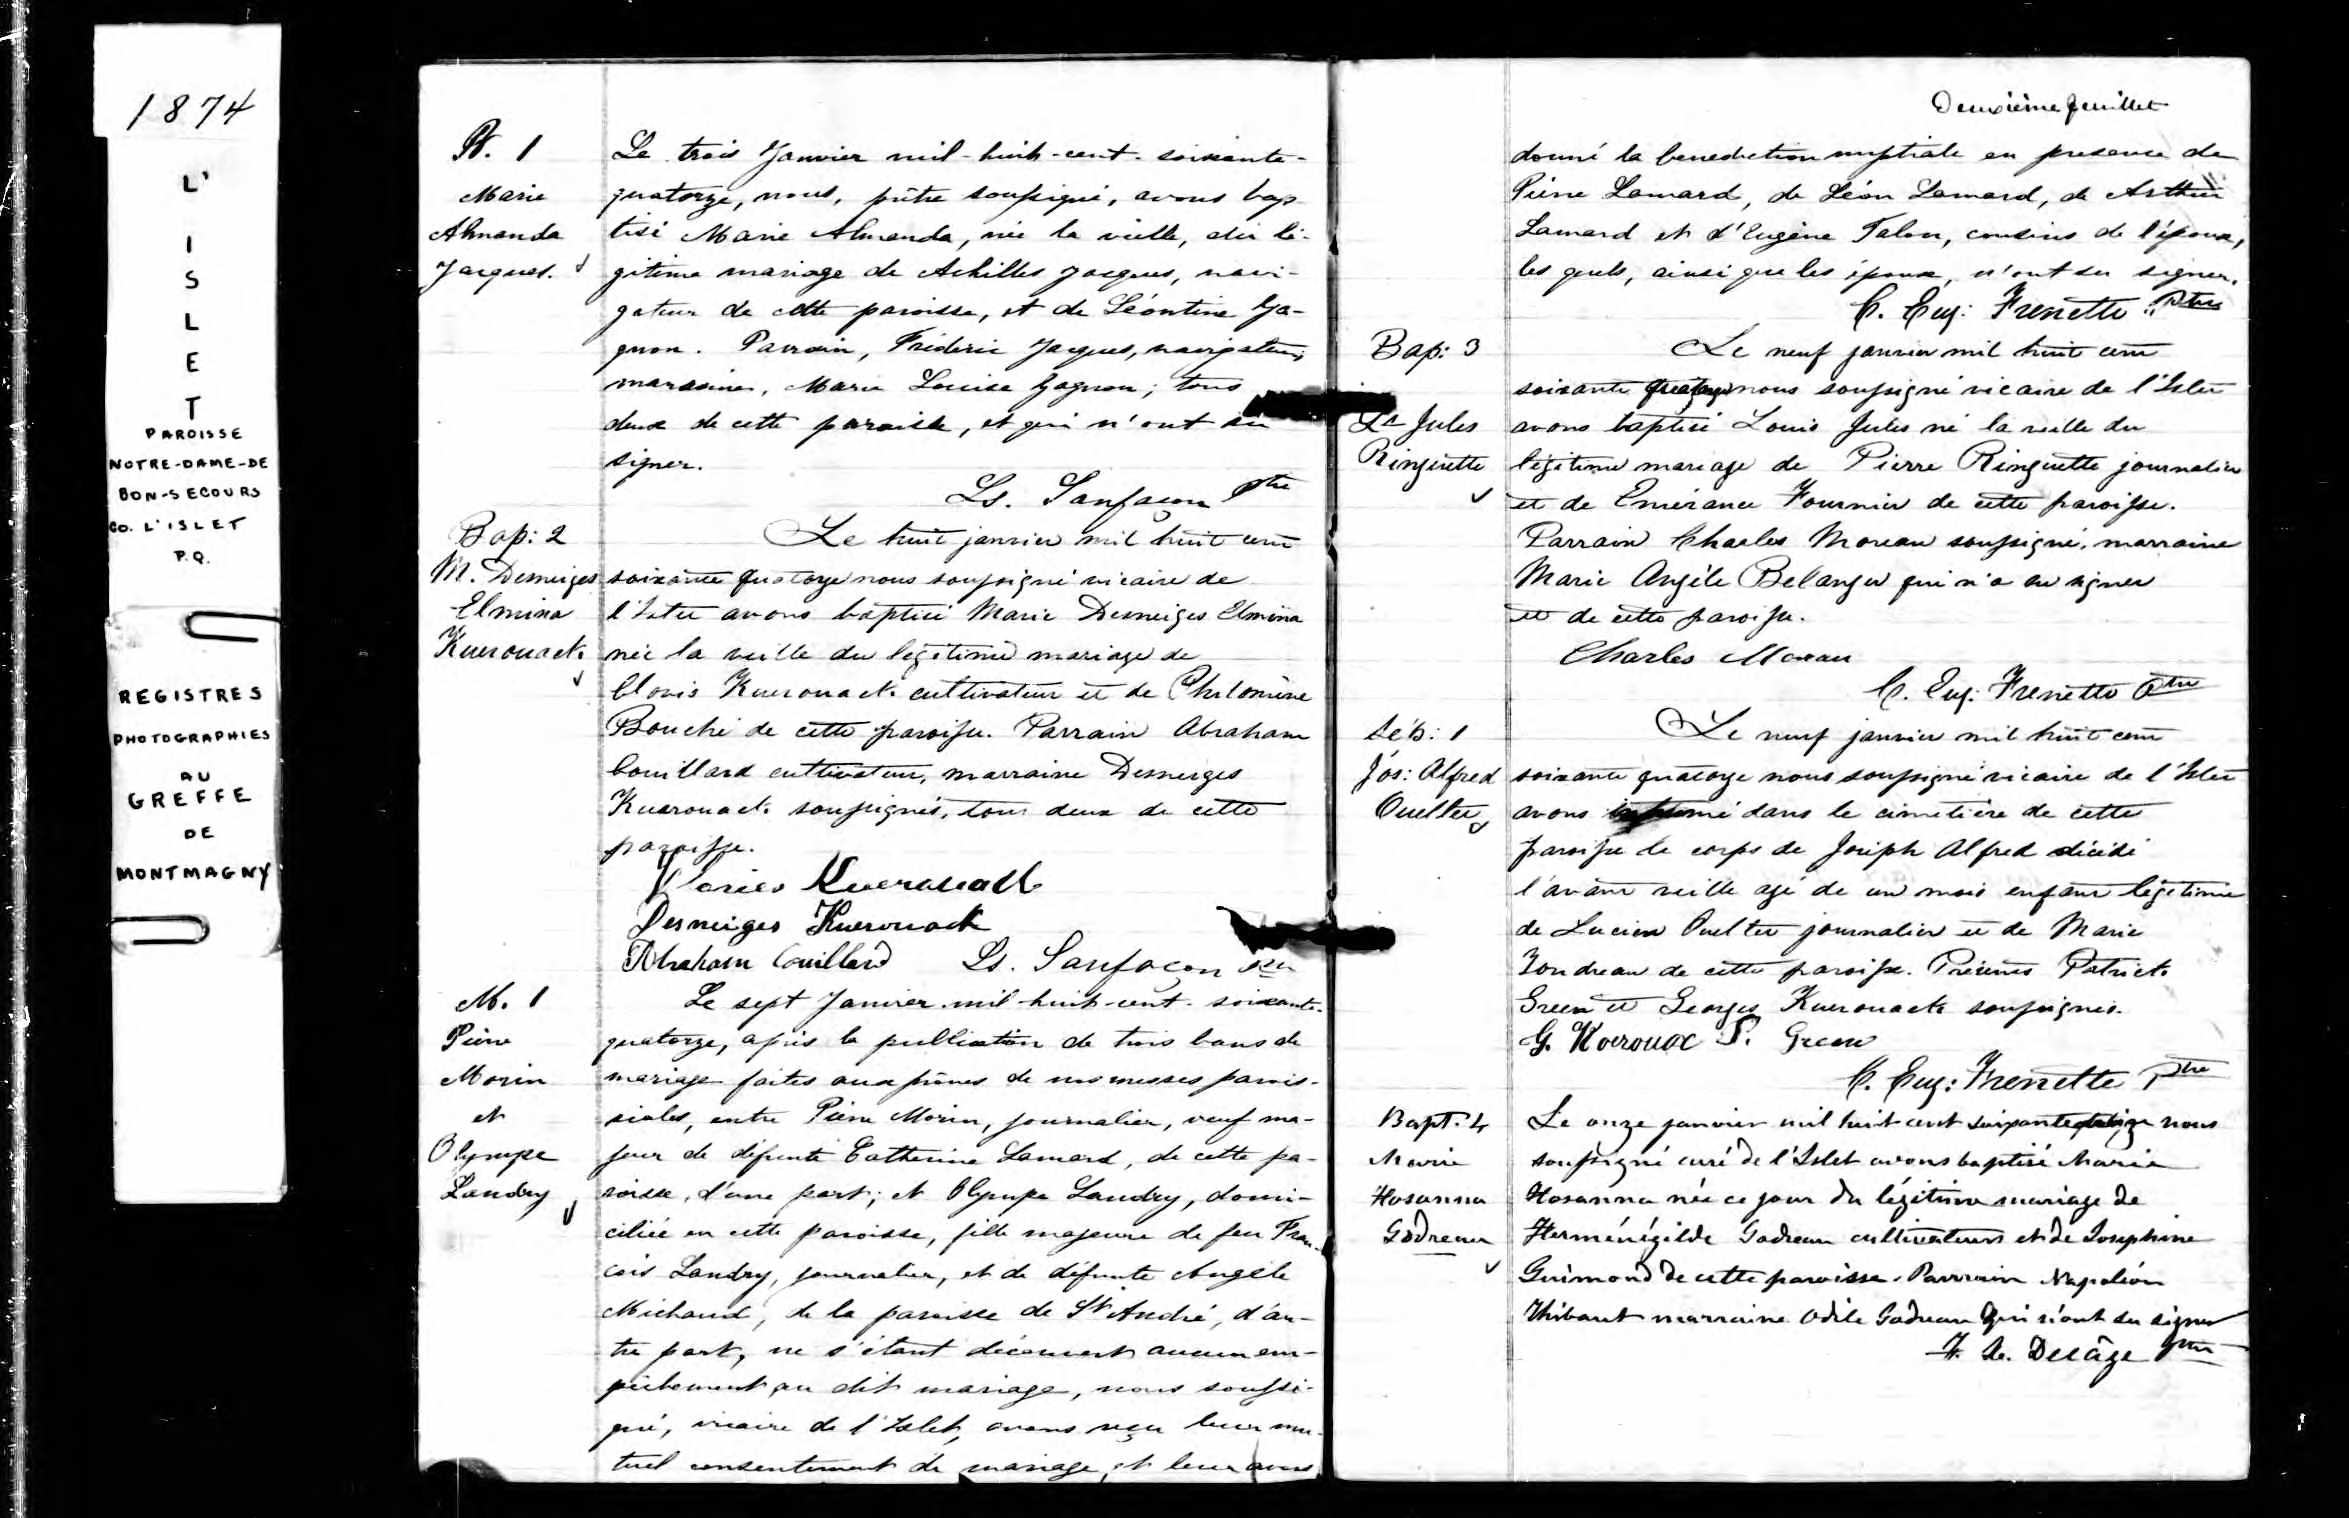 1874
L'
I
S
L
E
T
PAROISSE
NOTRE-DAME-DE
BON-SECOURS
CO. L'ISLET
P.Q.
REGISTRES
PHOTOGRAPHIES
AU
GREFFE
DE
MONTMAGNY
B. 1
Marie
Almanda
Jacques.
Le trois Janvier mil-huit-cent-soixante-
quatorze, nous, prêtre soussigné, avons bap
tisé Marie Almanda, née la veille, du lé-
gitime mariage de Achilles Jacques, navi-
gateur de cette paroisse, et de Léontine Ga-
gnon. Parrain, Fréderic Jacques, navigateur;
marraine, Marie Louise Gagnon; tous
deux de cette paroisse, et qui n'ont su
signer.
Ls. Sanfaçon Ptre
Bap: 2
M. Desneiges
Elmina
Kuerouack
Le huit janvier mil huit cent
soixante quatorze nous soussigné vicaire de
l'Islet avons baptisé Marie Desneiges Elmina
née la veille du légitime mariage de
Clovis Kuerouack cultivateur et de Philomène
Bouché de cette paroisse. Parrain Abraham
Couillard cultivateur, marraine Desneiges
Kuerouack soussignés, tous deux de cette
paroisse.
Kuerouack
Desneiges Kuerouack
Abraham Couillard Ls. Sanfaçon Ptre
M. 1
Pierre
Morin
et
Olympe
Landry
Le sept Janvier mil-huit-cent-soixante-
quatorze, après la publication de trois bans de
mariage faites aux prônes de nos messes parois-
siales, entre Pierre Morin, journalier, veuf ma-
jeur de défunte Catherine Lamard, de cette pa-
roisse, d'une part; et Olympe Landry, domi-
ciliée en cette paroisse, fille majeure de feu Fran-
cois Landry, journalier, et de défunte Angèle
Michaud, de la paroisse de St André, d'au-
tre part, ne s'étant découvert aucun em-
pêchement au dit mariage, nous soussi-
gné, vicaire de l'Islet, avons reçu leur mu-
tuel consentement de mariage, et leur avons
Deuxième feuillet
donné la benediction nuptiale en presence de
Pierre Lamard, de Léon Lamard, de Arthur
Lamard et d'Eugène Talon, cousins de l'époux,
les quels, ainsi que les époux, n'ont su signer.
C. Eug: Frenette Ptre
Bap: 3
Ls Jules
Ringuette
Le neuf janvier mil huit cent
soixante quatorze nous soussigné vicaire de l'Islet
avons baptisé Louis Jules né la veille du
légitime mariage de Pierre Ringuette journalier
et de Emérance Fournier de cette paroisse.
Parrain Charles Moreau soussigné, marraine
Marie Angèle Belanger qui n'a su signer
et de cette paroisse.
Charles Moreau
C. Eug: Frenette Ptre
Sép: 1
Jos: Alfred
Ouellet
Le neuf janvier mil huit cent
soixante quatorze nous soussigné vicaire de l'Islet
avons inhumé dans le cimetière de cette
paroisse le corps de Joseph Alfred décédé
l'avant veille agé de un mois enfant légitime
de Lucien Ouellet journalier et de Marie
de cette paroisse. Présents Patrick
Green et Georges Kuerouack soussignés.
G. Kerouac P. Green
C. Eug: Frenette Ptre
Bapt. 4
Marie
Hosanna
Godreau
Le onze janvier mil huit cent soixante quatorze nous
soussigné curé de l'Islet avons baptisé Marie
Hosanna née ce jour du légitime mariage de
Herménégilde Godreau cultivateur et de Josephine
Guimond de cette paroisse. Parrain Napoléon
Thibaut marraine Odile Godreau qui n'ont su signer
F. X. Delâge Ptre